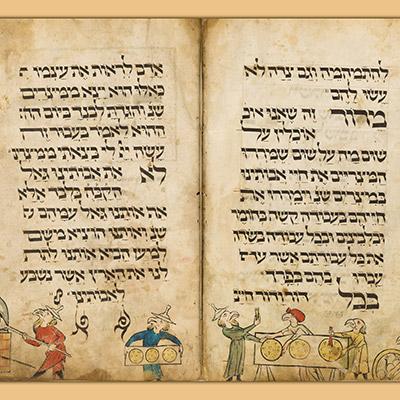 להתמהמה וגם צדה לא
עשו להם
מרור זה שאנו אוכ
אוכלין על
שום מה על שום שמררו
המצריים את חיי אבותינו
במצרים שנ וימררו את חייהם
בעבודה קשה בחומר
ובלבנים ובכל עבודה בשדה
את כל עבודתם אשר
עבדו בהם בפרך
בכל דור ודור חייב
אדם לראות את עצמו
כאלו הוא יצא ממצרים
שנ והגדת לבנך ביום
ההוא לאמר בעבור זה
עשה לי בצאתי ממצרים
לא את אבותינו גאל
הקבה בלבד אלא
אף אותנו גאל עמהם
ואותנו הוציא משם
למען הביא אותנו לתת
לנו את הארץ אשר נשבע
לאבותינו